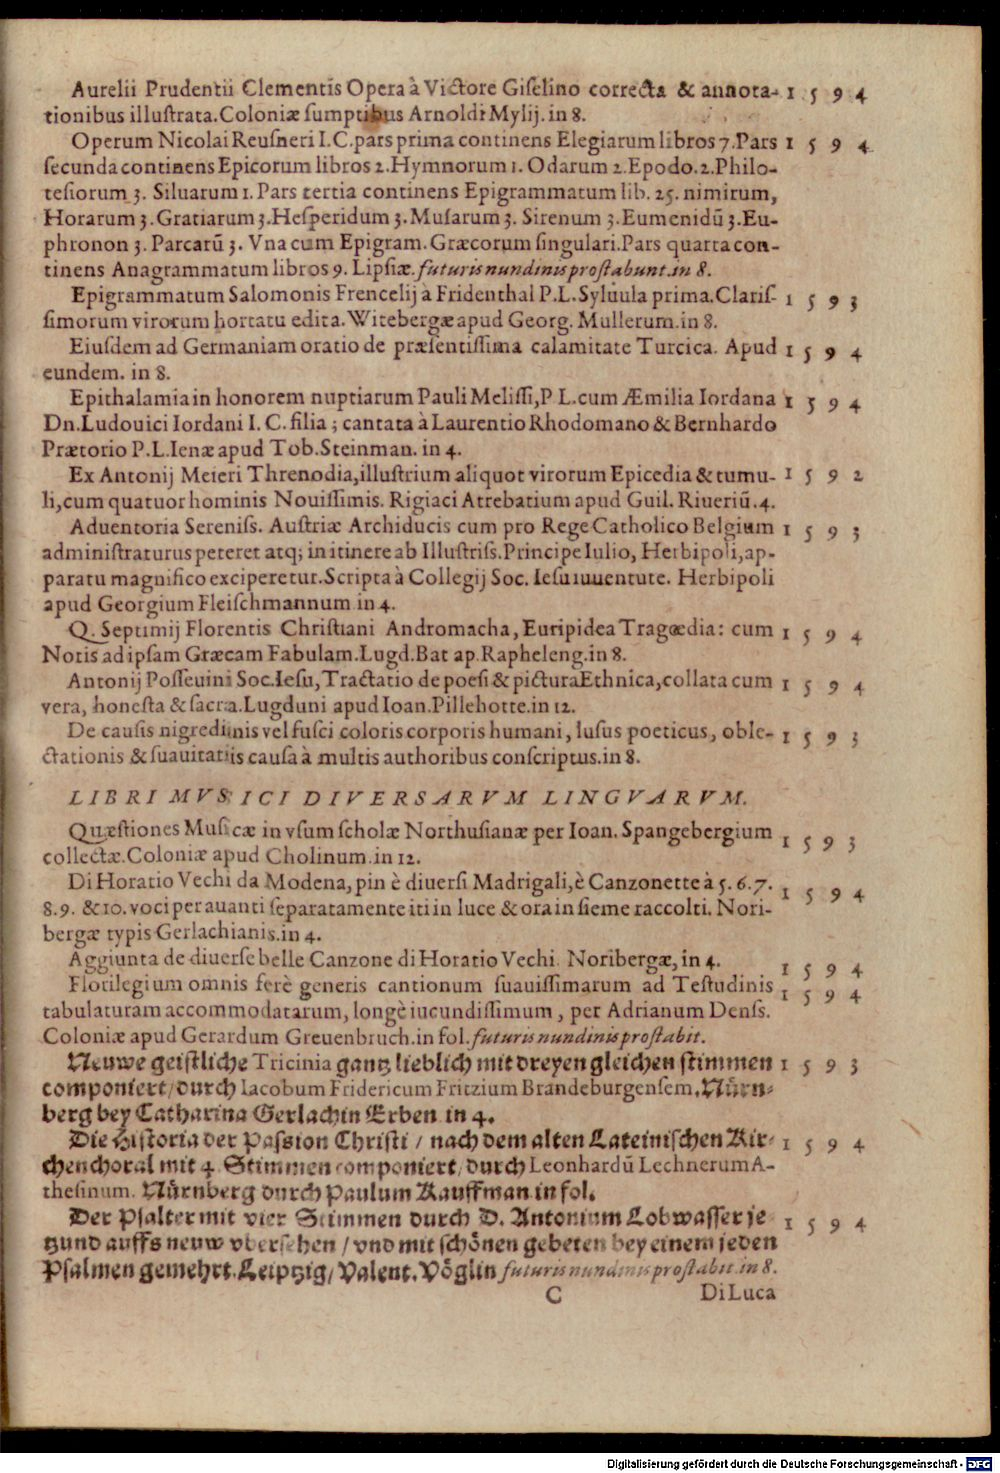 Aurelii Prudentii Clementis Opera à Victore Giſelino correcta & annota- 1 5 9 4
tionibus illuſtrata. Coloniæ ſumptibus Arnoldi Mylij. in 8.
Operum Nicolai Reuſneri I. C. pars prima continens Elegiarum libros 7. Pars 1 5 9 4
ſecunda continens Epicorum libros 2. Hymnorum 1. Odarum 2. Epodo. 2. Philo-
teſiorum 3. Siluarum 1. Pars tertia continens Epigrammatum lib. 25. nimirum,
Horarum 3. Gratiarum 3. Heſperidum 3. Muſarum 3. Sirenum 3. Eumenidũ 3. Eu-
phronon 3. Parcarũ 3. Vna cum Epigram. Græcorum ſingulari. Pars quarta con-
tinens Anagrammatum libros 9. Lipſiæ. futuris nundinis proſtabunt. in 8.
Epigrammatum Salomonis Frencelij à Fridenthal P. L. Syluula prima. Clariſ- 1 5 9 3
ſimorum virorum hortatu edita. Witebergæ apud Georg. Mullerum. in 8.
Eiuſdem ad Germaniam oratio de præſentiſſima calamitate Turcica. Apud 1 5 9 4
eundem. in 8.
Epithalamia in honorem nuptiarum Pauli Meliſſi, P L. cum Æmilia Iordana 1 5 9 4
Dn. Ludouici Iordani I. C. filia ; cantata à Laurentio Rhodomano & Bernhardo
Prætorio P. L. Ienæ apud Tob. Steinman. in 4.
Ex Antonij Meieri Threnodia, illuſtrium aliquot virorum Epicedia & tumu- 1 5 9 2
li, cum quatuor hominis Nouiſſimis. Rigiaci Atrebatium apud Guil. Riueriũ. 4.
Aduentoria Sereniſſ. Auſtriæ Archiducis cum pro Rege Catholico Belgium 1 5 9 3
adminiſtraturus peteret atq; in itinere ab Illuſtriſſ. Principe Iulio, Herbipoli, ap-
paratu magnifico exciperetur. Scripta à Collegij Soc. Ieſu iuuentute. Herbipoli
apud Georgium Fleiſchmannum in 4.
Q. Septimij Florentis Chriſtiani Andromacha, Euripidea Tragœdia: cum 1 5 9 4
Notis ad ipſam Græcam Fabulam. Lugd. Bat ap. Rapheleng. in 8.
Antonij Poſſeuini Soc. Ieſu, Tractatio de poeſi & pictura Ethnica, collata cum 1 5 9 4
vera, honeſta & ſacra. Lugduni apud Ioan. Pillehotte. in 12.
De cauſis nigredinis vel fuſci coloris corporis humani, luſus poeticus, oble- 1 5 9 3
ctationis & ſuauitatis cauſa à multis authoribus conſcriptus. in 8.
LIBRI MVSICI DIVERSARVM LINGVARVM.
Quæſtiones Muſicæ in vſum ſcholæ Northuſianæ per Ioan. Spangebergium 1 5 9 3
collectæ. Coloniæ apud Cholinum. in 12.
Di Horatio Vechi da Modena, pin è diuerſi Madrigali, è Canzonette à 5. 6. 7. 1 5 9 4
8. 9. & 10. voci per auanti ſeparatamente iti in luce & ora in ſieme raccolti. Nori-
bergæ typis Gerlachianis. in 4.
Aggiunta de diuerſe belle Canzone di Horatio Vechi. Noribergæ, in 4. 1 5 9 4
Florilegium omnis ferè generis cantionum ſuauiſſimarum ad Teſtudinis 1 5 9 4
tabulaturam accommodatarum, longè iucundiſſimum, per Adrianum Denſſ.
Coloniæ apud Gerardum Greuenbruch. in fol. futuris nundinis proſtabit.
Neuwe geiſtliche Tricinia gantz lieblich mit dreyen gleichen ſtimmen 1 5 9 3
componiert / durch Iacobum Fridericum Fritzium Brandeburgenſem, Nürn-
berg bey Catharina Gerlachin Erben in 4.
Die Hiſtoria der Paſsion Chriſti / nach dem alten Lateiniſchen Kir- 1 5 9 4
chen choral mit 4 Stimmen componiert / durch Leonhardũ Lechnerum A-
theſinum. Nürnberg durch Paulum Kauffman in fol.
Der Pſalter mit vier Stimmen durch D. Antonium Lobwaſſer je 1 5 9 4
tzund auffs neuw vberſehen / vnd mit ſchönen gebeten bey einem jeden
Pſalmen gemehrt. Leiptzig / Valent. Vöglin futuris nundinis proſtabit. in 8.
C Di Luca
Digitalisierung gefördert durch die Deutsche Forschungsgemeinschaft - DFG